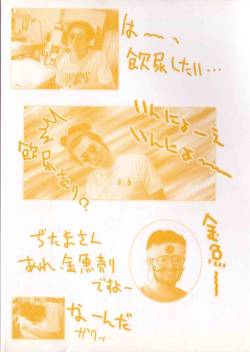 は〜、
飲尿したい…
いんにょーえ
いんにょ〜
飲尿売り?
金魚〜
ぢたまさん
あれ、金魚売り
でね〜
なーんだ
ガクッ